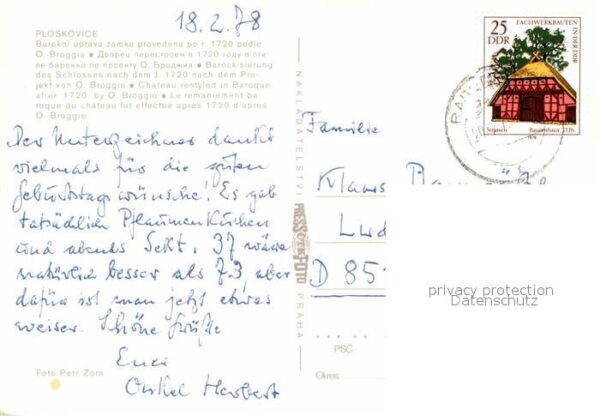 18.2.78
PLOSKOVICE
Barokní úprava zámku provedena po r. 1720 podle
O. Broggia • Дворец перестроен в 1720 году в сти-
ле барокко по проекту О. Броджиа • Barockisierung
des Schlosses nach dem J. 1720 nach dem Pro-
jekt von O. Broggio • Château restyled in Baroque
after 1720 by O. Broggio • Le remaniement ba-
roque du château fut effectué après 1720 d'après
O. Broggio
Der Unterzeichner dankt
vielmals für die guten
Geburtstagswünsche! Es gab
tatsächlich Pflaumenkuchen
und abends Sekt. 37 wäre
natürlich besser als 73, aber
dafür ist man jetzt etwas
weiser. Schöne Grüße
Euer
Onkel Herbert
Foto Petr Zora
NAKLADATELSTVÍ
PRESSFOTO
PRAHA
25
DDR
FACHWERKBAUTEN
IN DER DDR
Strassen
Bauernhaus
1978
Familie
Klaus
Lud
D 85
PSČ
Okres:
privacy protection
Datenschutz